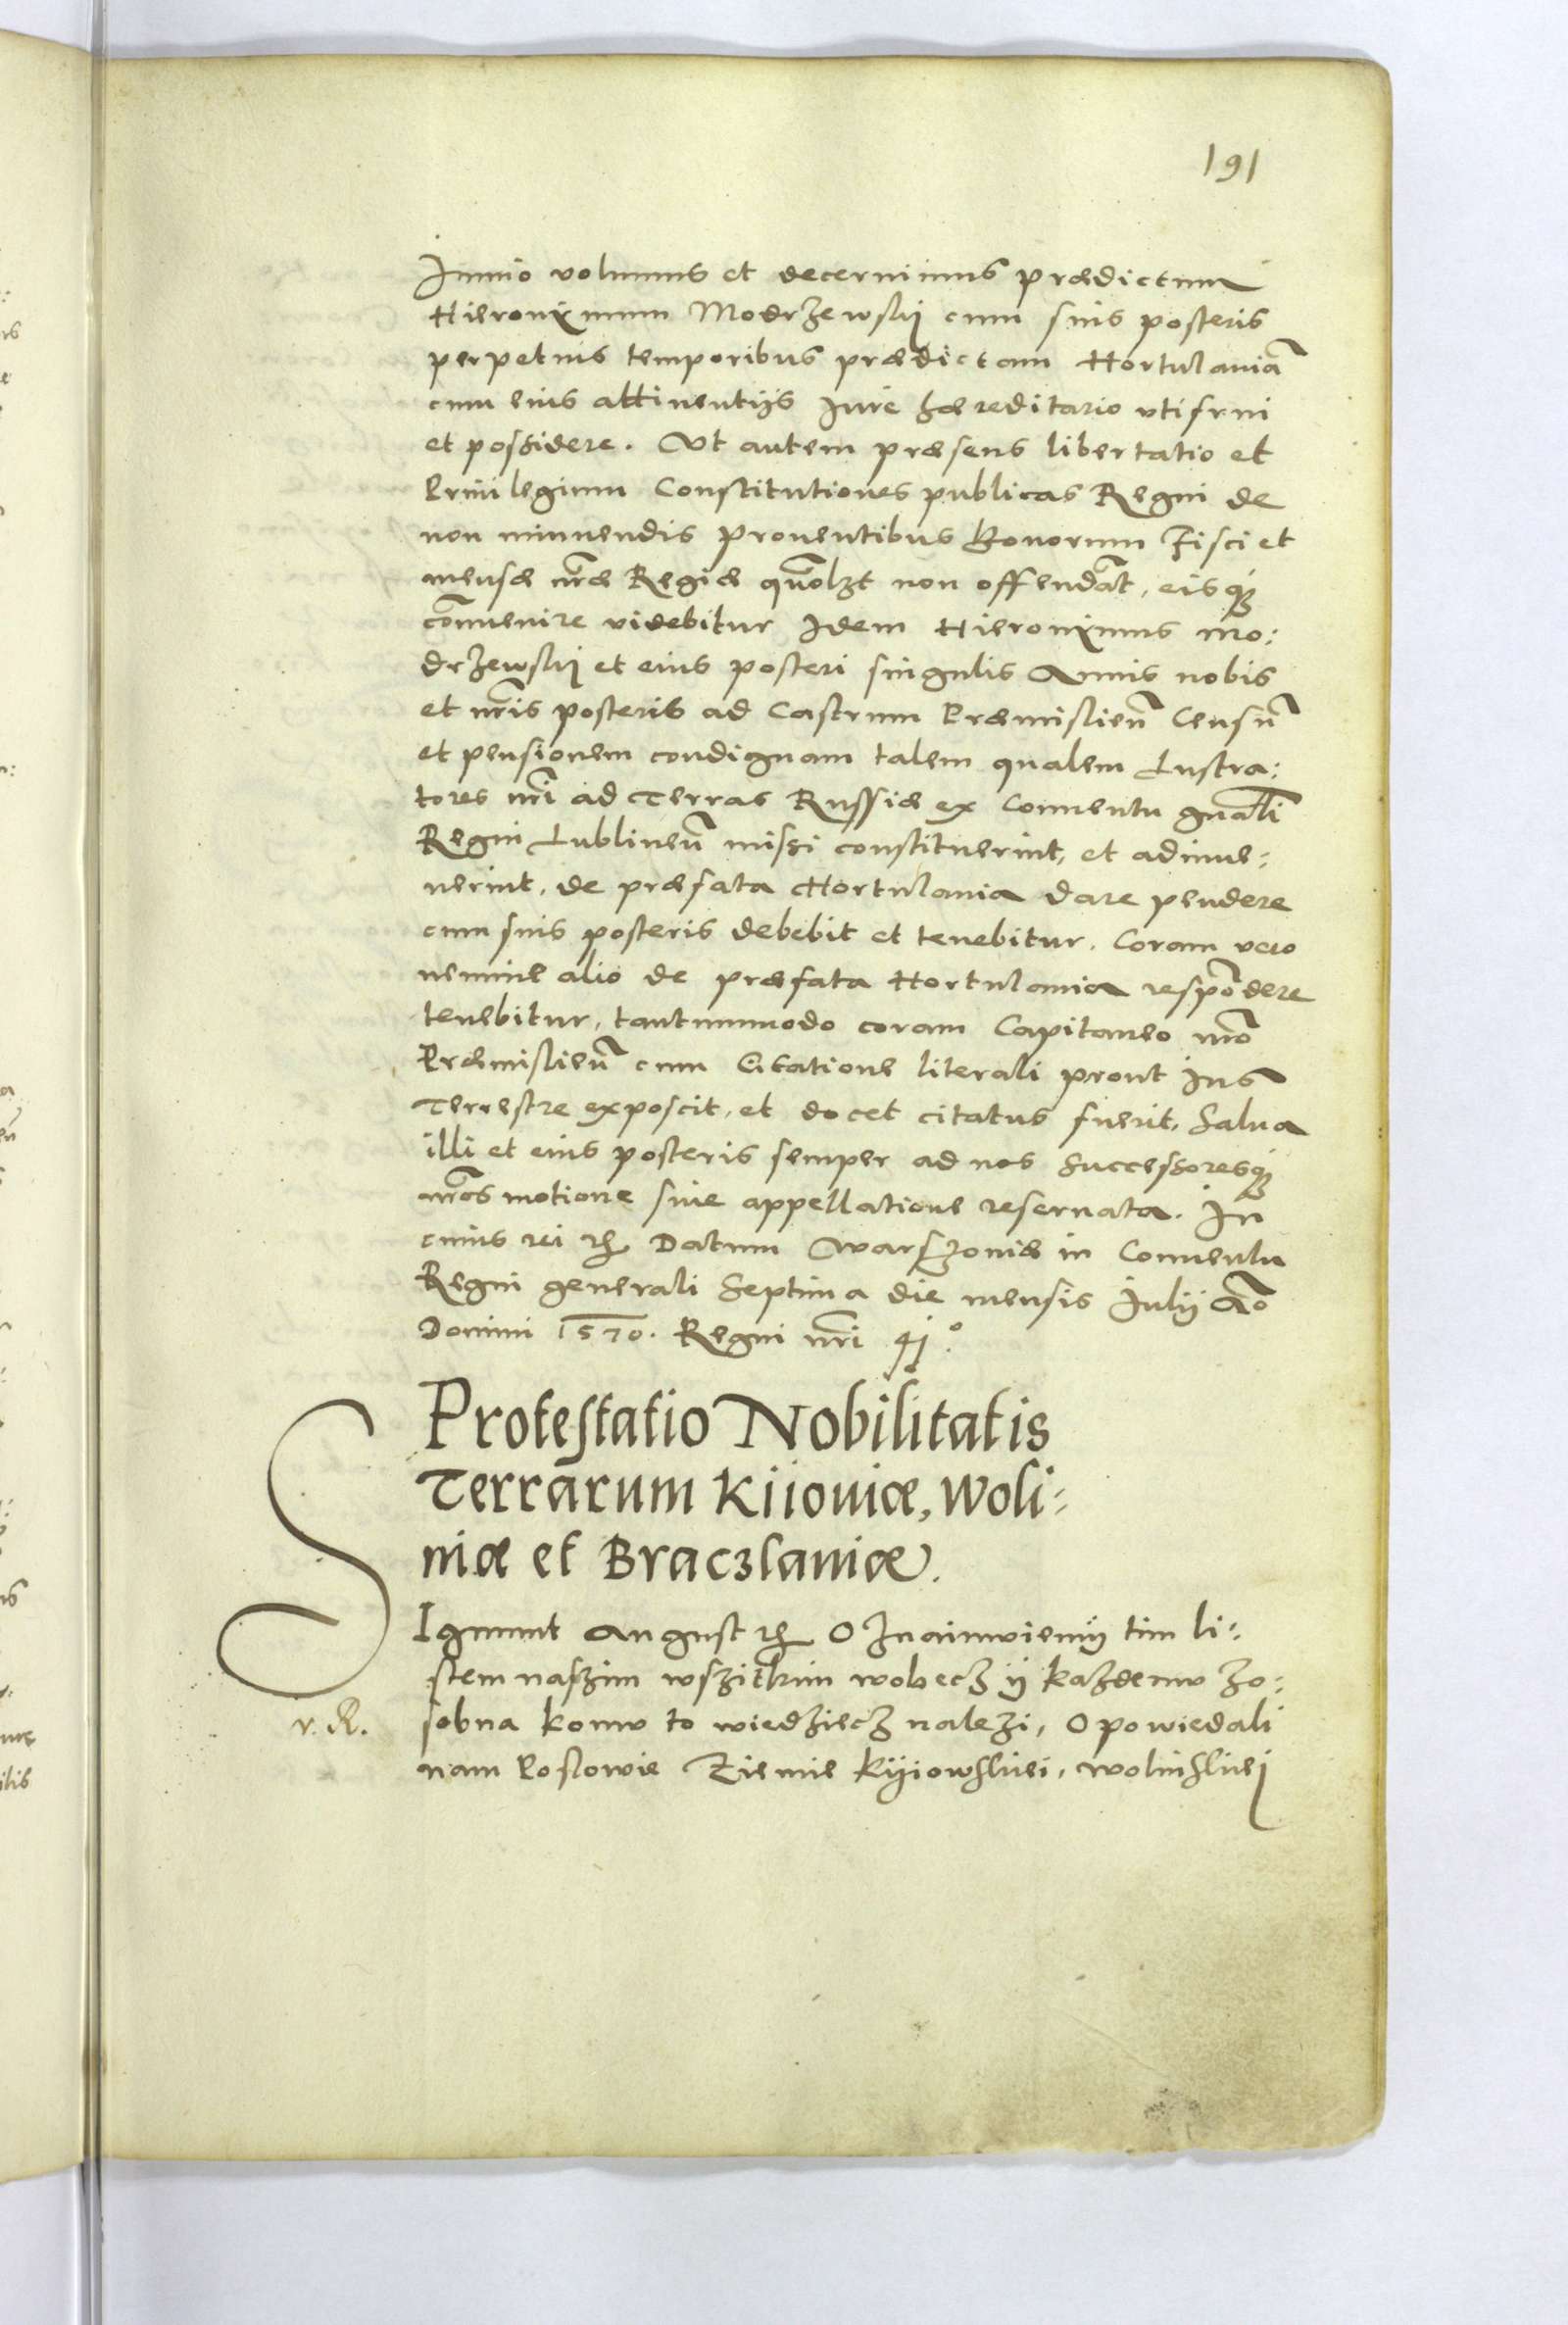 191
Immo volumus et decernimus prædictum
Hieronimum Modrzewskj cum suis posteris
perpetuis temporibus prædictam Hortulaniā
cum eius attinentijs Iure hæreditario vti frui
et possidere. Vt autem præsens libertatio et
Priuilegium Constitutiones publicas Regni de
non minuendis prouentibus Bonorum Fisci et
mensæ nr̄æ Regiæ quōlzt non offendāt, eisqꝫ
cōnuenire videbitur Idem Hieronimus Mo:
drzewskj et eius posteri singulis Annis nobis
et nr̄is posteris ad Castrum Præmislien̄ Censū
et pensionem condignam talem qualem Lustra:
tores nr̄i ad Terras Russiæ ex Conuentu gnāli
Regni Lublinen̄ missi constituerint, et adinue:
nerint, de præfata Hortulania dare pendere
cum suis posteris debebit et tenebitur. Coram vero
nemine alio de præfata Hortulania respōdere
tenebitur, tantummodo coram Capitaneo nr̄o
Præmislien̄ cum Citatione literali prout Ius
Terrestre exposcit, et docet citatus fuerit, Salua
illi et eius posteris semper ad nos Successoresqꝫ
nr̄os motione siue appellatione reseruata. In
cuius rei ꝛc̄ Datum Warszouiæ in Conuentu
Regni generali Septima die mensis Iulij Āo
Domini 1570. Regni nr̄i 41º.
Protestatio Nobilitatis
Terrarum Kijouiæ, Woli:
niæ et Braczlauiæ.
SIgmunt August ꝛc̄ Oznaimuiemÿ tim li:
stem naszim wszitkim wobecz ÿ kazdemu zo:
v. R. sobna komu to wiedziecz nalezi, Opowiedali
nam Poslowie Ziemie Kijiowskiei, Wolinskiej